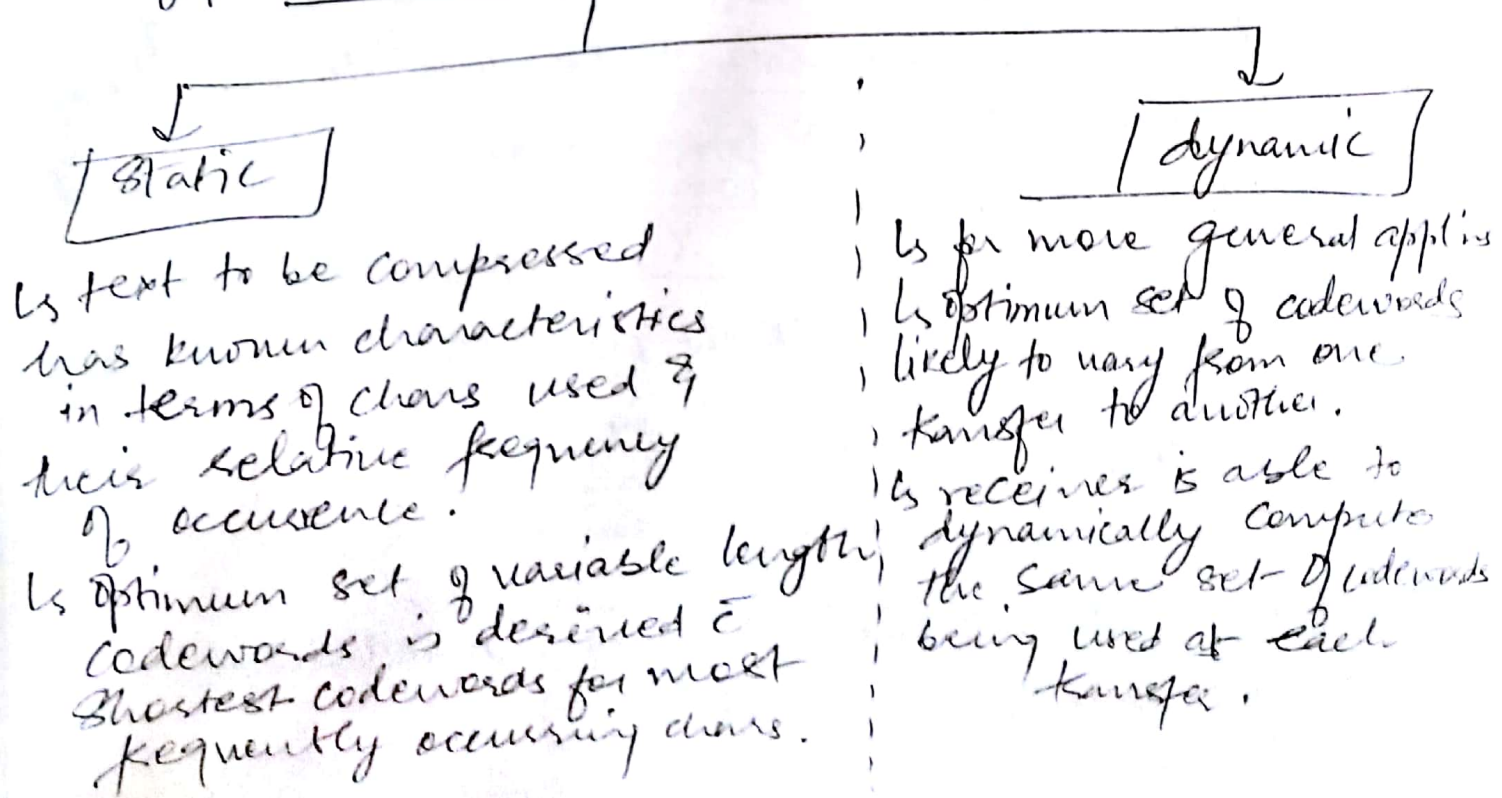 static
↳ text to be compressed
has known characteristics
in terms of chars used &
their relative frequency
of occurence.
↳ optimum set of variable length
codewords is derived c̄
shortest codewords for most
frequently occurring chars.
dynamic
↳ for more general appl'ns
↳ optimum set of codewords
likely to vary from one
transfer to another.
↳ receiver is able to
dynamically compute
the same set of codewords
being used at each
transfer.